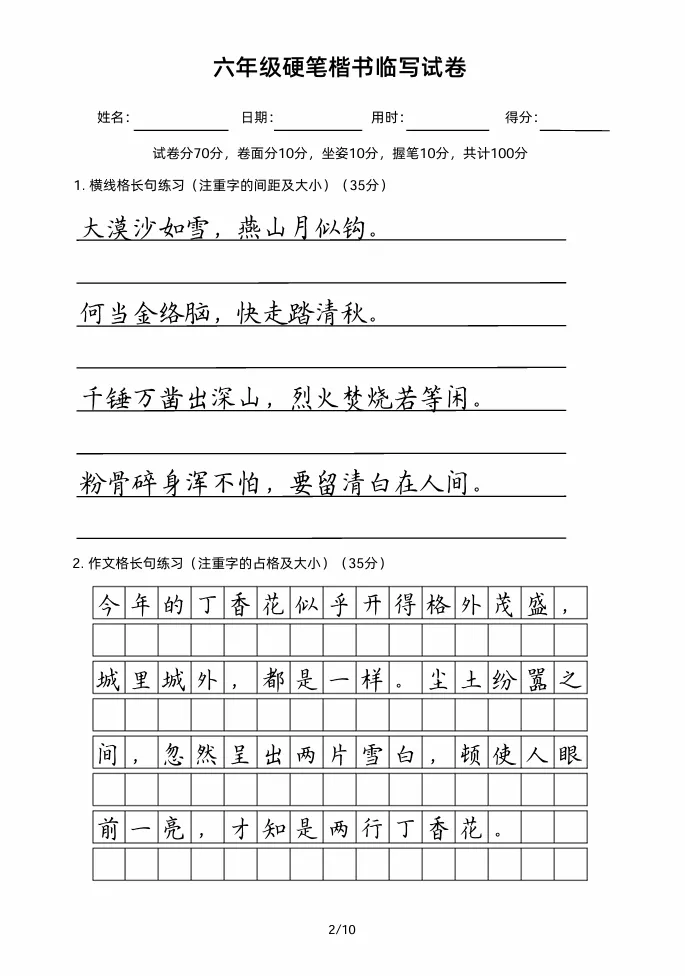 六年级硬笔楷书临写试卷
姓名: 日期: 用时: 得分:
试卷分70分，卷面分10分，坐姿10分，握笔10分，共计100分
1. 横线格长句练习（注重字的间距及大小）（35分）
大漠沙如雪，燕山月似钩。
何当金络脑，快走踏清秋。
千锤万凿出深山，烈火焚烧若等闲。
粉骨碎身浑不怕，要留清白在人间。
2. 作文格长句练习（注重字的占格及大小）（35分）
今年的丁香花似乎开得格外茂盛，
城里城外，都是一样。尘土纷嚣之
间，忽然呈出两片雪白，顿使人眼
前一亮，才知是两行丁香花。
2/10